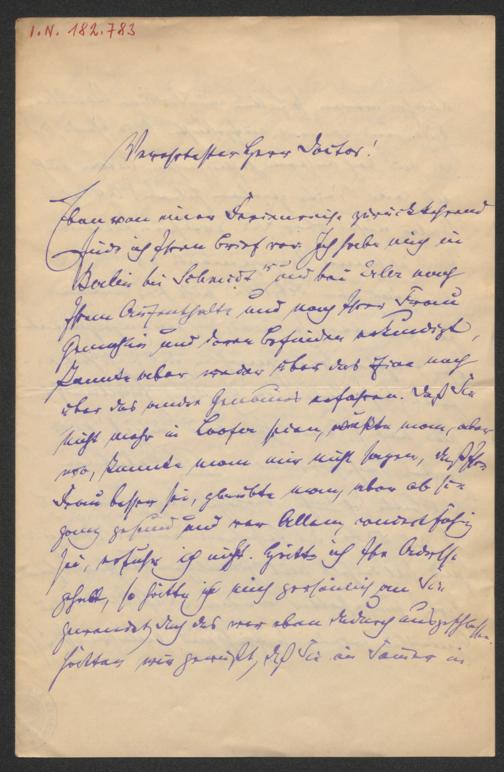 I.N. 182.783
Verehrtester Herr Doctor!
Eben von einer Ferienreise zurückkehrend
finde ich Ihren Brief vor. Ich habe mich in
Berlin bei Schmidt und bei Erler nach
Ihrem Aufenthalte und nach Ihrer Frau
Gemahlin und deren Befinden erkundigt,
konnte aber weder über das Eine noch
über das andre Genaues erfahren. Daß Sie
nicht mehr in seien, wußte man, aber
wo, konnte man mir nicht sagen, daß Ihre
Frau besser sei, glaubte man, aber ob sie
ganz gesund und vor Allem
sei, erfuhr ich nicht. Hätte ich Ihre Adresse
gehabt, so hätte ich mich persönlich an Sie
gewendet, doch das war eben dadurch ausgeschlossen.
Hätten wir gewußt, daß Sie im Sommer in